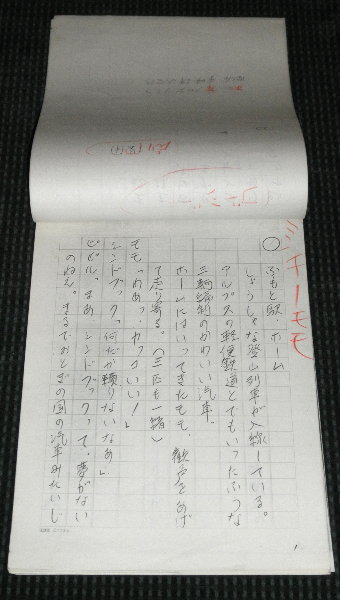 ミンキーモモ
○
ふもと駅・ホーム
しょうしゃな登山列車が入線している。
アルプスの軽便鉄道とでもいったふうな
三輛編制のかわいい汽車。
ホームにはいってきたモモ、歓声をあげ
て走り寄る。(三匹も一緒)
モモ「わあっ、かっこいい!」
シンドブック「何だか頼りないなあ」
ピピル「まあ シンドブックって、夢がない
のねえ。まるでおとぎの国の汽車みたいじ
1